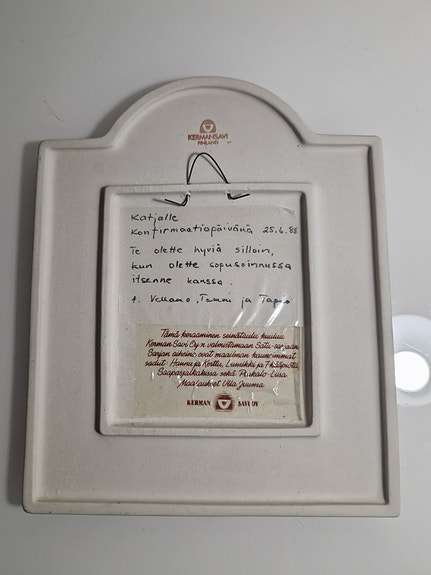 KERMANSAVI
FINLAND
Katjalle
Konfirmaatiopäivänä 25.6.88
Te olette hyviä silloin,
kun olette sopusoinnussa
itsenne kanssa.
t. Veikko, Tommi ja Tapio
Tämä keraaminen seinätaulu kuuluu
Kerman Savi Oy:n valmistamaan Satu-sarjaan.
Sarjan aiheina ovat maailman kauneimmat
sadut: Hannu ja Kerttu, Lumikki ja 7 kääpiötä,
Saapasjalkakissa sekä Peukalo-Liisa.
Maalaukset Vila Juuma
KERMAN SAVI OY